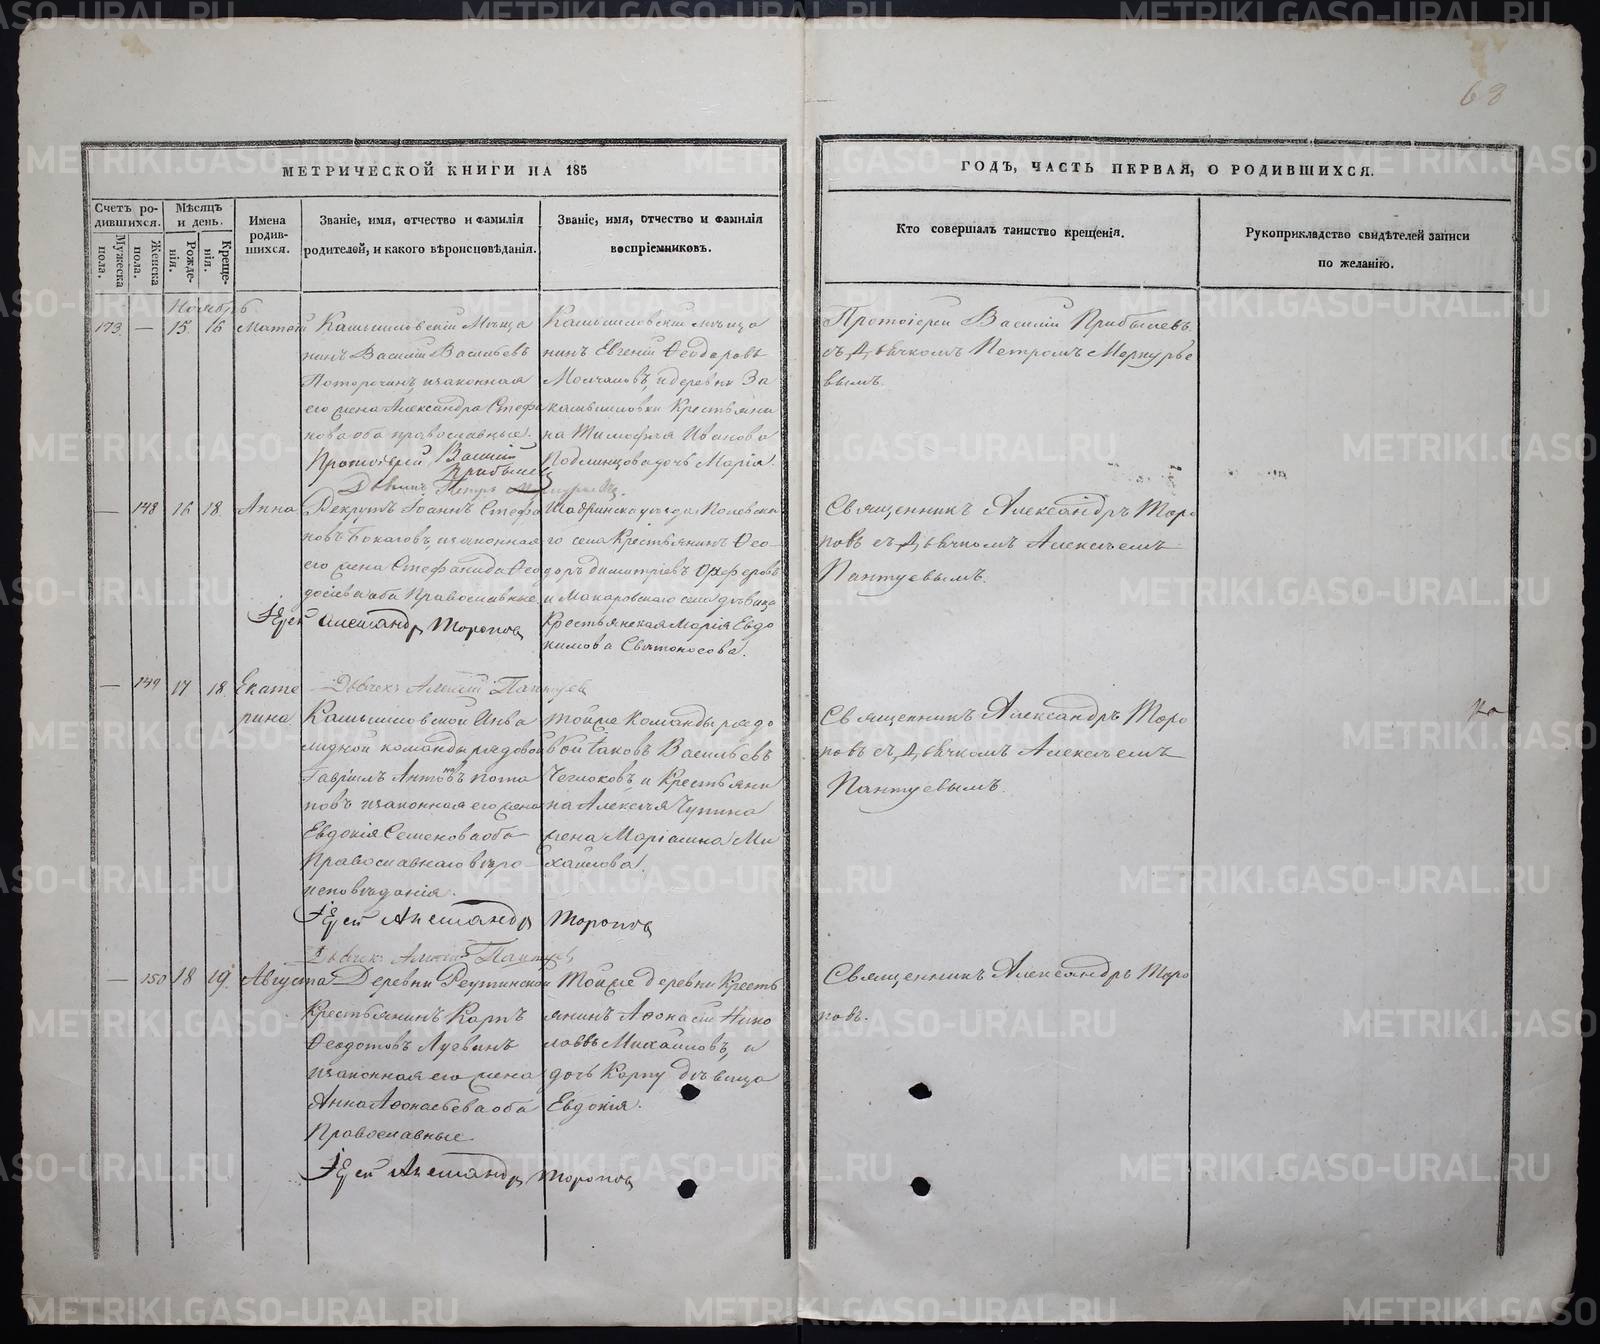 68
МЕТРИЧЕСКОЙ КНИГИ НА 185
ГОДЪ, ЧАСТЬ ПЕРВАЯ, О РОДИВШИХСЯ.
Счетъ ро-
дившихся.
Мужеска пола.
Женска пола.
Мѣсяцъ
и день.
Рожде-
нія.
Креще-
нія.
Имена
родив-
шихся.
Званіе, имя, отчество и фамилія
родителей, и какого вѣроисповѣданія.
Званіе, имя, отчество и фамилія
воспріемниковъ.
Кто совершалъ таинство крещенія.
Рукоприкладство свидѣтелей записи
по желанію.
Ноябрь
173. — 15. 16 Матѳей
Камышловскій Мѣща
нинъ Василій Васильевъ
Поторочинъ, и законная
его жена Александра Стефа
нова оба православные.
Протоіерей Василій
Прибылев
Дьячекъ Петръ Меркурьевъ
Камышловскій мѣща
нинъ Евгеній Ѳеодоровъ
Молчановъ, и деревни За
камышловки Крестьяни
на Тимофея Иванова
Подлинцова дочь Марія.
Протоіерей Василій Прибылевъ
съ Дьячкомъ Петромъ Меркурье
вымъ.
— 148 16 18. Анна
Рекрутъ Іоаннъ Стефа
новъ Бокаловъ, и законная
его жена Стефанида Ѳео
досіева оба Православные.
Іерей Александръ Тороповъ
Шадринскаго уезда Полевска
го села Крестьянинъ Ѳео-
доръ Димитріевъ
и Макаровскаго села дѣвица
Крестьянская Марія Евдо
кимова Святоносова.
Священникъ Александръ Торо
повъ съ Дьячкомъ Алексѣемъ
Пантуевымъ.
— 149 17 18. Екате
рина
Дьячекъ Алексій Пантуев
Камышловской Инва
лидной команды рядовой
Гавріилъ Антоновъ Пота
повъ и законная его жена
Евдокія Семенова оба
Православнаго вѣро-
исповѣданія.
Іерей Александръ Тороповъ
Дьячекъ Алексій Пантуевъ
Тойже Команды рядо
вой Іаковъ Васильевъ
Чеглоковъ, и Крестьяни
на Алексѣя Чупина
жена Маріамна Ми
хаилова.
Священникъ Александръ Торо
повъ съ Дьячкомъ Алексѣемъ
Пантуевымъ.
— 150 18 19. Августа
Деревни Реутинской
Крестьянинъ Карпъ
Ѳеодотовъ Лузинъ
и законная его жена
Анна Аѳонасьева оба
Православные.
Іерей Александръ Тороповъ
Тойже деревни Кресть
янинъ Аѳонасій Нико
лаевъ Михаиловъ, и
дочь Карпу дѣвица
Евдокія.
Священникъ Александръ Торо
повъ.
METRIKI.GASO-URAL.RU